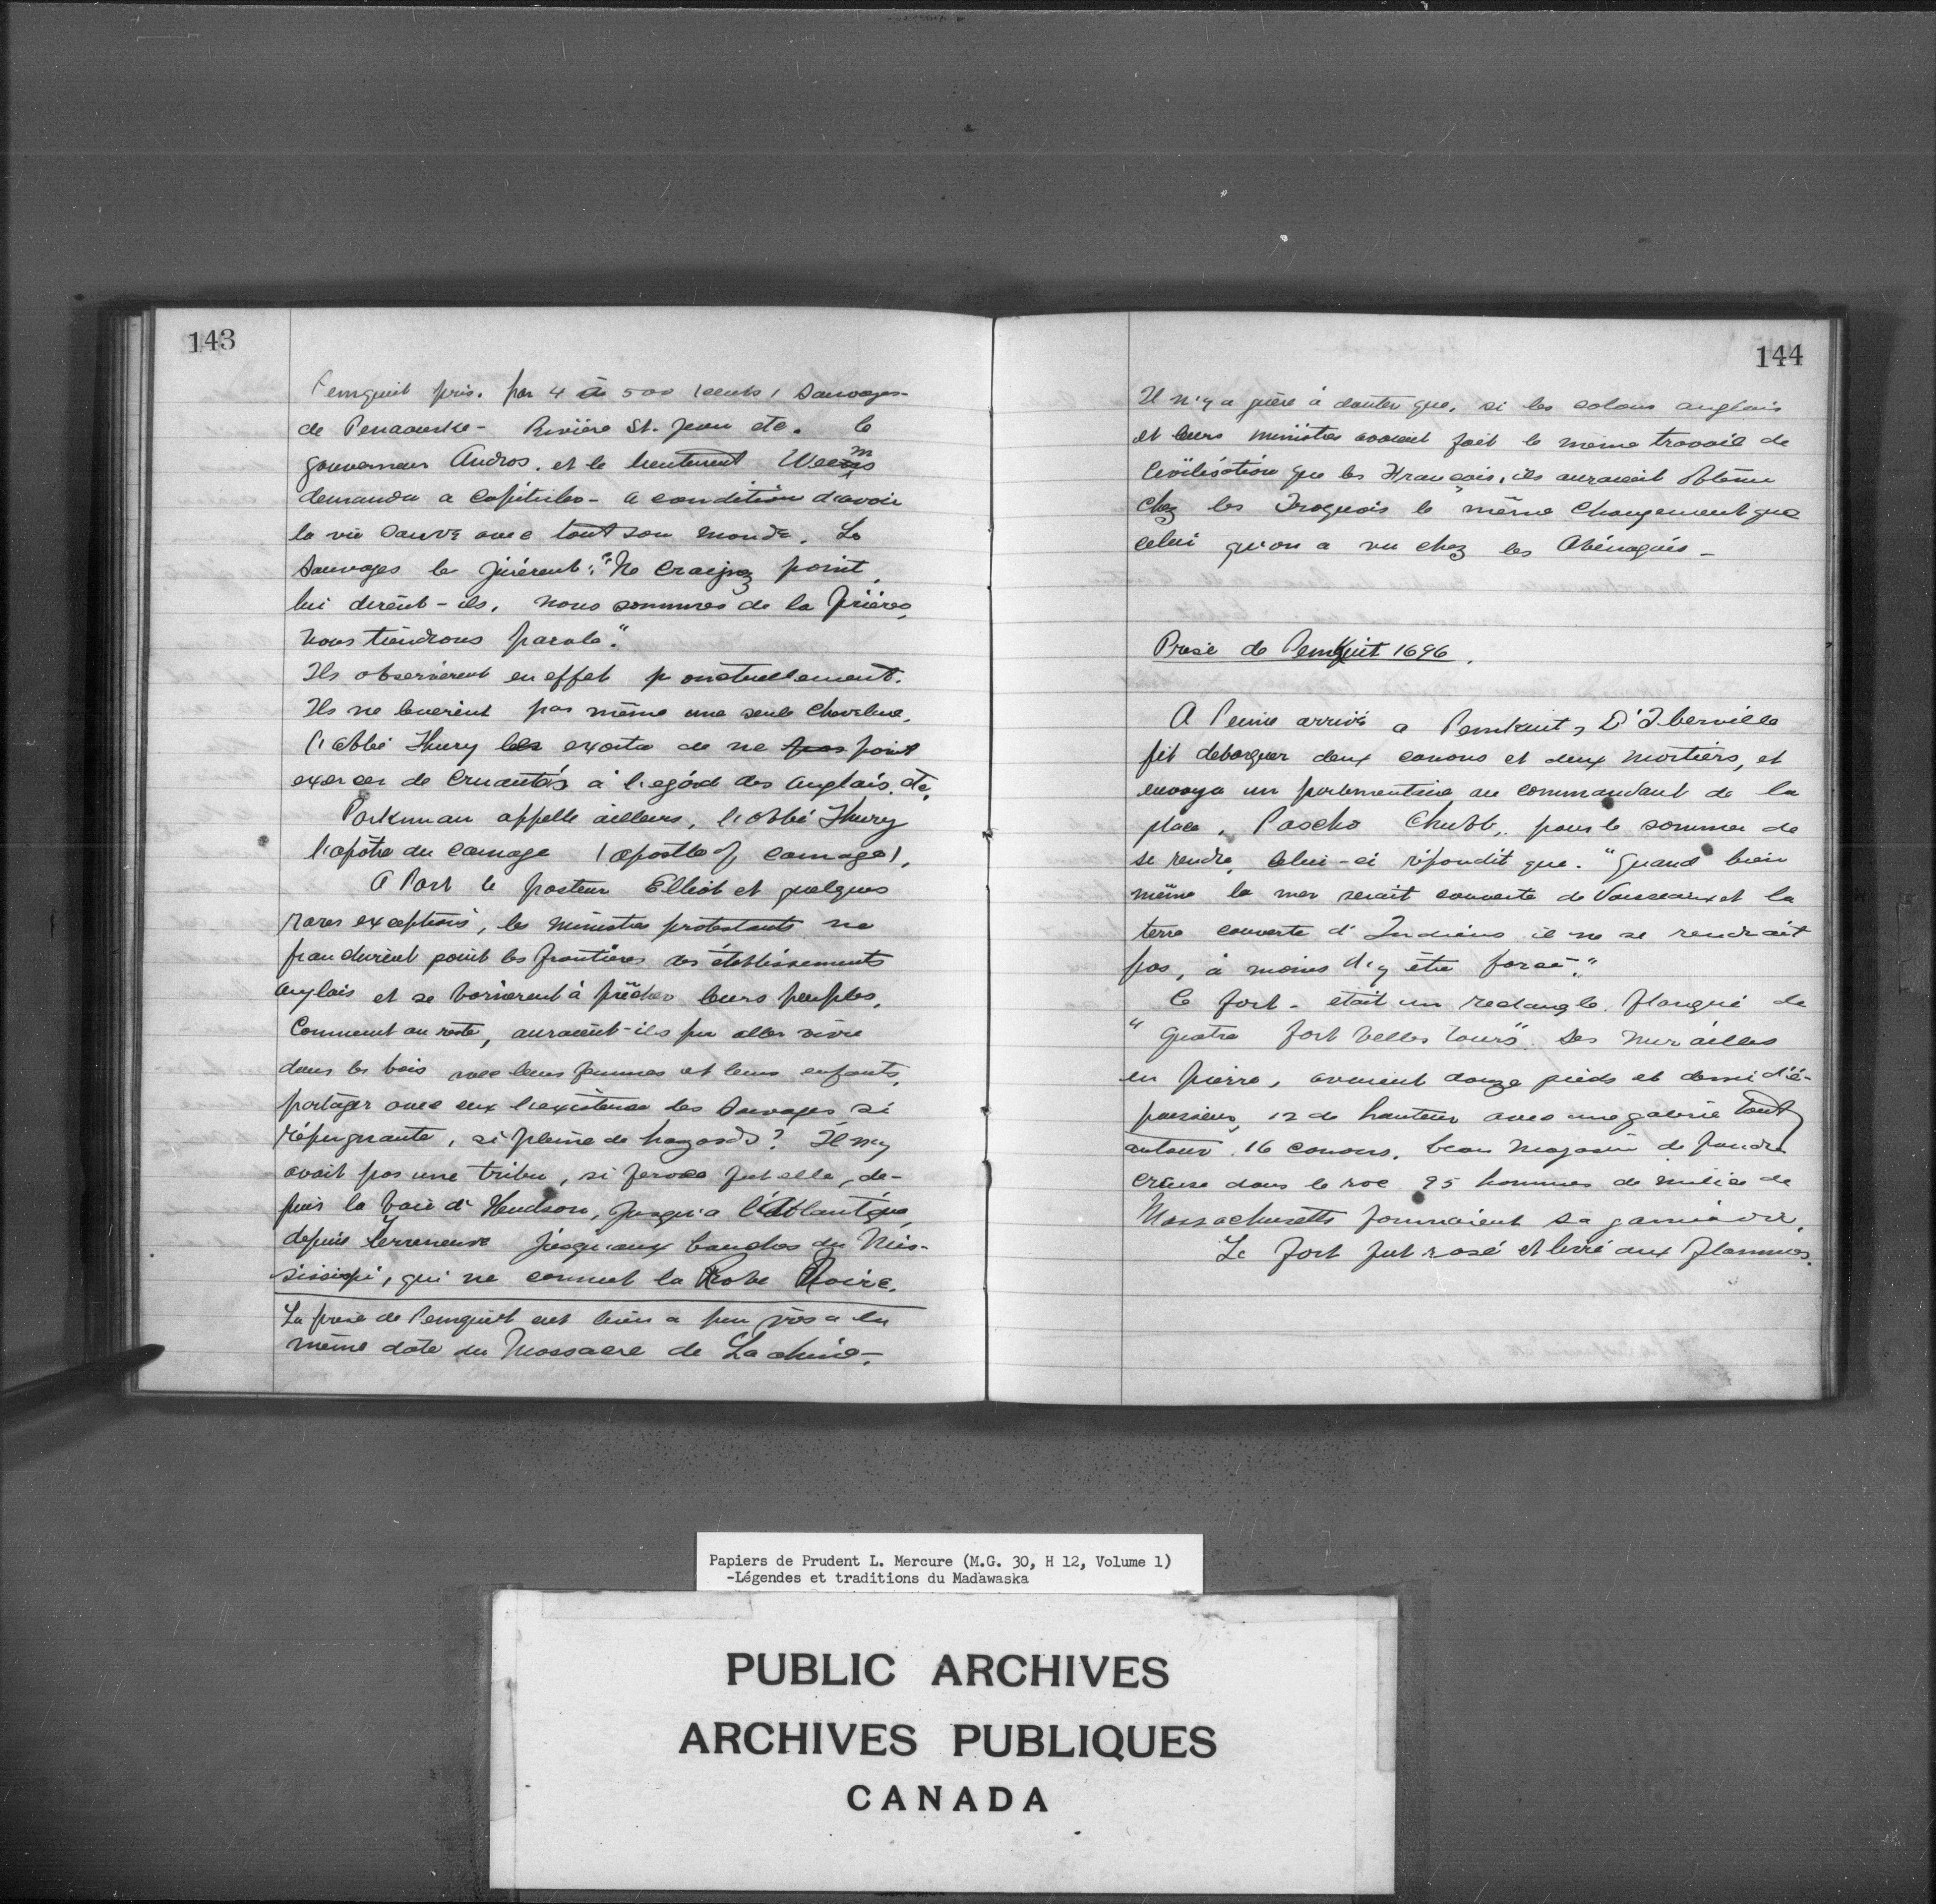 143
Pemquit pris. par 4 à 500 (cents) Sauvages-
de Penaouske - Rivière St. Jean etc. le
gouverneur Andros. et le lieutenant Weems
demanda a capituler - a condition d'avoir
la vie sauve avec tout son monde. Le
Sauvages le jurèrent: "Ne craignez point,
lui dirent-ils, nous sommes de la prières,
nous tiendrons parole".
Ils observèrent en effet ponctuellement.
Ils ne leverent pas même une seule chevelure.
l'abbé Thury les exorta de ne pas point
exercer de cruautés à l'egárd des Anglais. etc.
Parkman appelle ailleurs, l'abbé Thury
l'apôtre du carnage (apostle of carnage).
A Part le pasteur Elliot et quelques
rares exceptions, les ministres protestants ne
franchirent point les frontières des établissements
anglais et se bornèrent à prêcher leurs peuples.
Comment au reste, auraient-ils pu aller vivre
dans les bois avec leurs femmes et leurs enfants,
partager avec eux l'existence des Sauvages si
répugnante, si pleine de hazards? Il n'y
avait pas une tribu, si feroce fut elle, de-
puis la baie d'Hudson, jusqu'a l'Atlantique,
depuis Terreneuve jusqu'aux bouches du Mis-
sissipi, qui ne connut la Robe Noire.
La prise de Pemquit eut lieu a peu près a la
même date du Massacre de Lachine-.
144
Il n'y a guère à douter que, si les colons anglais
et leurs ministres avaient fait le meme travail de
Civilisation que les Francais, ils auraient obtenu
chez les Iroquois le même changement que
celui qu'on a vu chez les Abénaquis -
Prise de Pemkuit 1696.
A Peine arrivé a Pemkuit, D'Iberville
fit debarquer deux canons et deux mortiers, et
envoya un parlementaire au commandant de la
place, Pascho Chubb, pour le sommer de
se rendre, Celui-ci répondit que. "Quand bien
même la mer serait couverte de Vaisseaux et la
terre couverte d'Indiens il ne se rendrait
pas, à moins d'y être forcé."
le fort - était un rectangle. flanqué de
"quatre fort belles tours". Ses murailles
en pierre, avaient douze pieds et demi d'é-
paisseur, 12 de hauteur avec une galerie tout
autour. 16 canons, beau magasin de poudre
creusé dans le roc 95 hommes de milice de
Massachusetts formaient sa garnison.
Le fort fut rasé et livré aux flammes.
Papiers de Prudent L. Mercure (M.G. 30, H 12, Volume 1)
-Légendes et traditions du Madawaska
PUBLIC ARCHIVES
ARCHIVES PUBLIQUES
CANADA